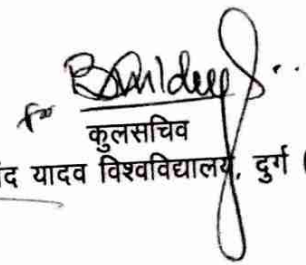 for
कुलसचिव
द यादव विश्वविद्यालय, दुर्ग (